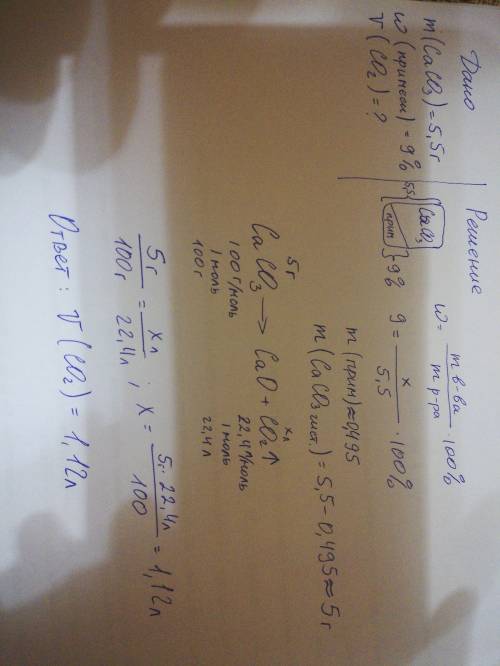 Дано
m(CaCO₃) = 5,5г
w(примеси) = 9%
V(CO₂) = ?
Решение
5,5 { CaCO₃
прим } 9%
w = m в-ва / m р-ра · 100%
9 = x / 5,5 · 100%
m(прим) ≈ 0,495
m(CaCO₃ чист.) = 5,5 - 0,495 ≈ 5г
5г xл
CaCO₃ → CaO + CO₂↑
100 г/моль 22,4 л/моль
1 моль 1 моль
100г 22,4л
5г / 100г = xл / 22,4л ; x = 5 · 22,4л / 100 = 1,12л
Ответ: V(CO₂) = 1,12л